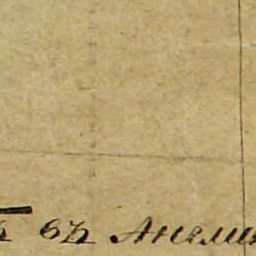 въ Англи